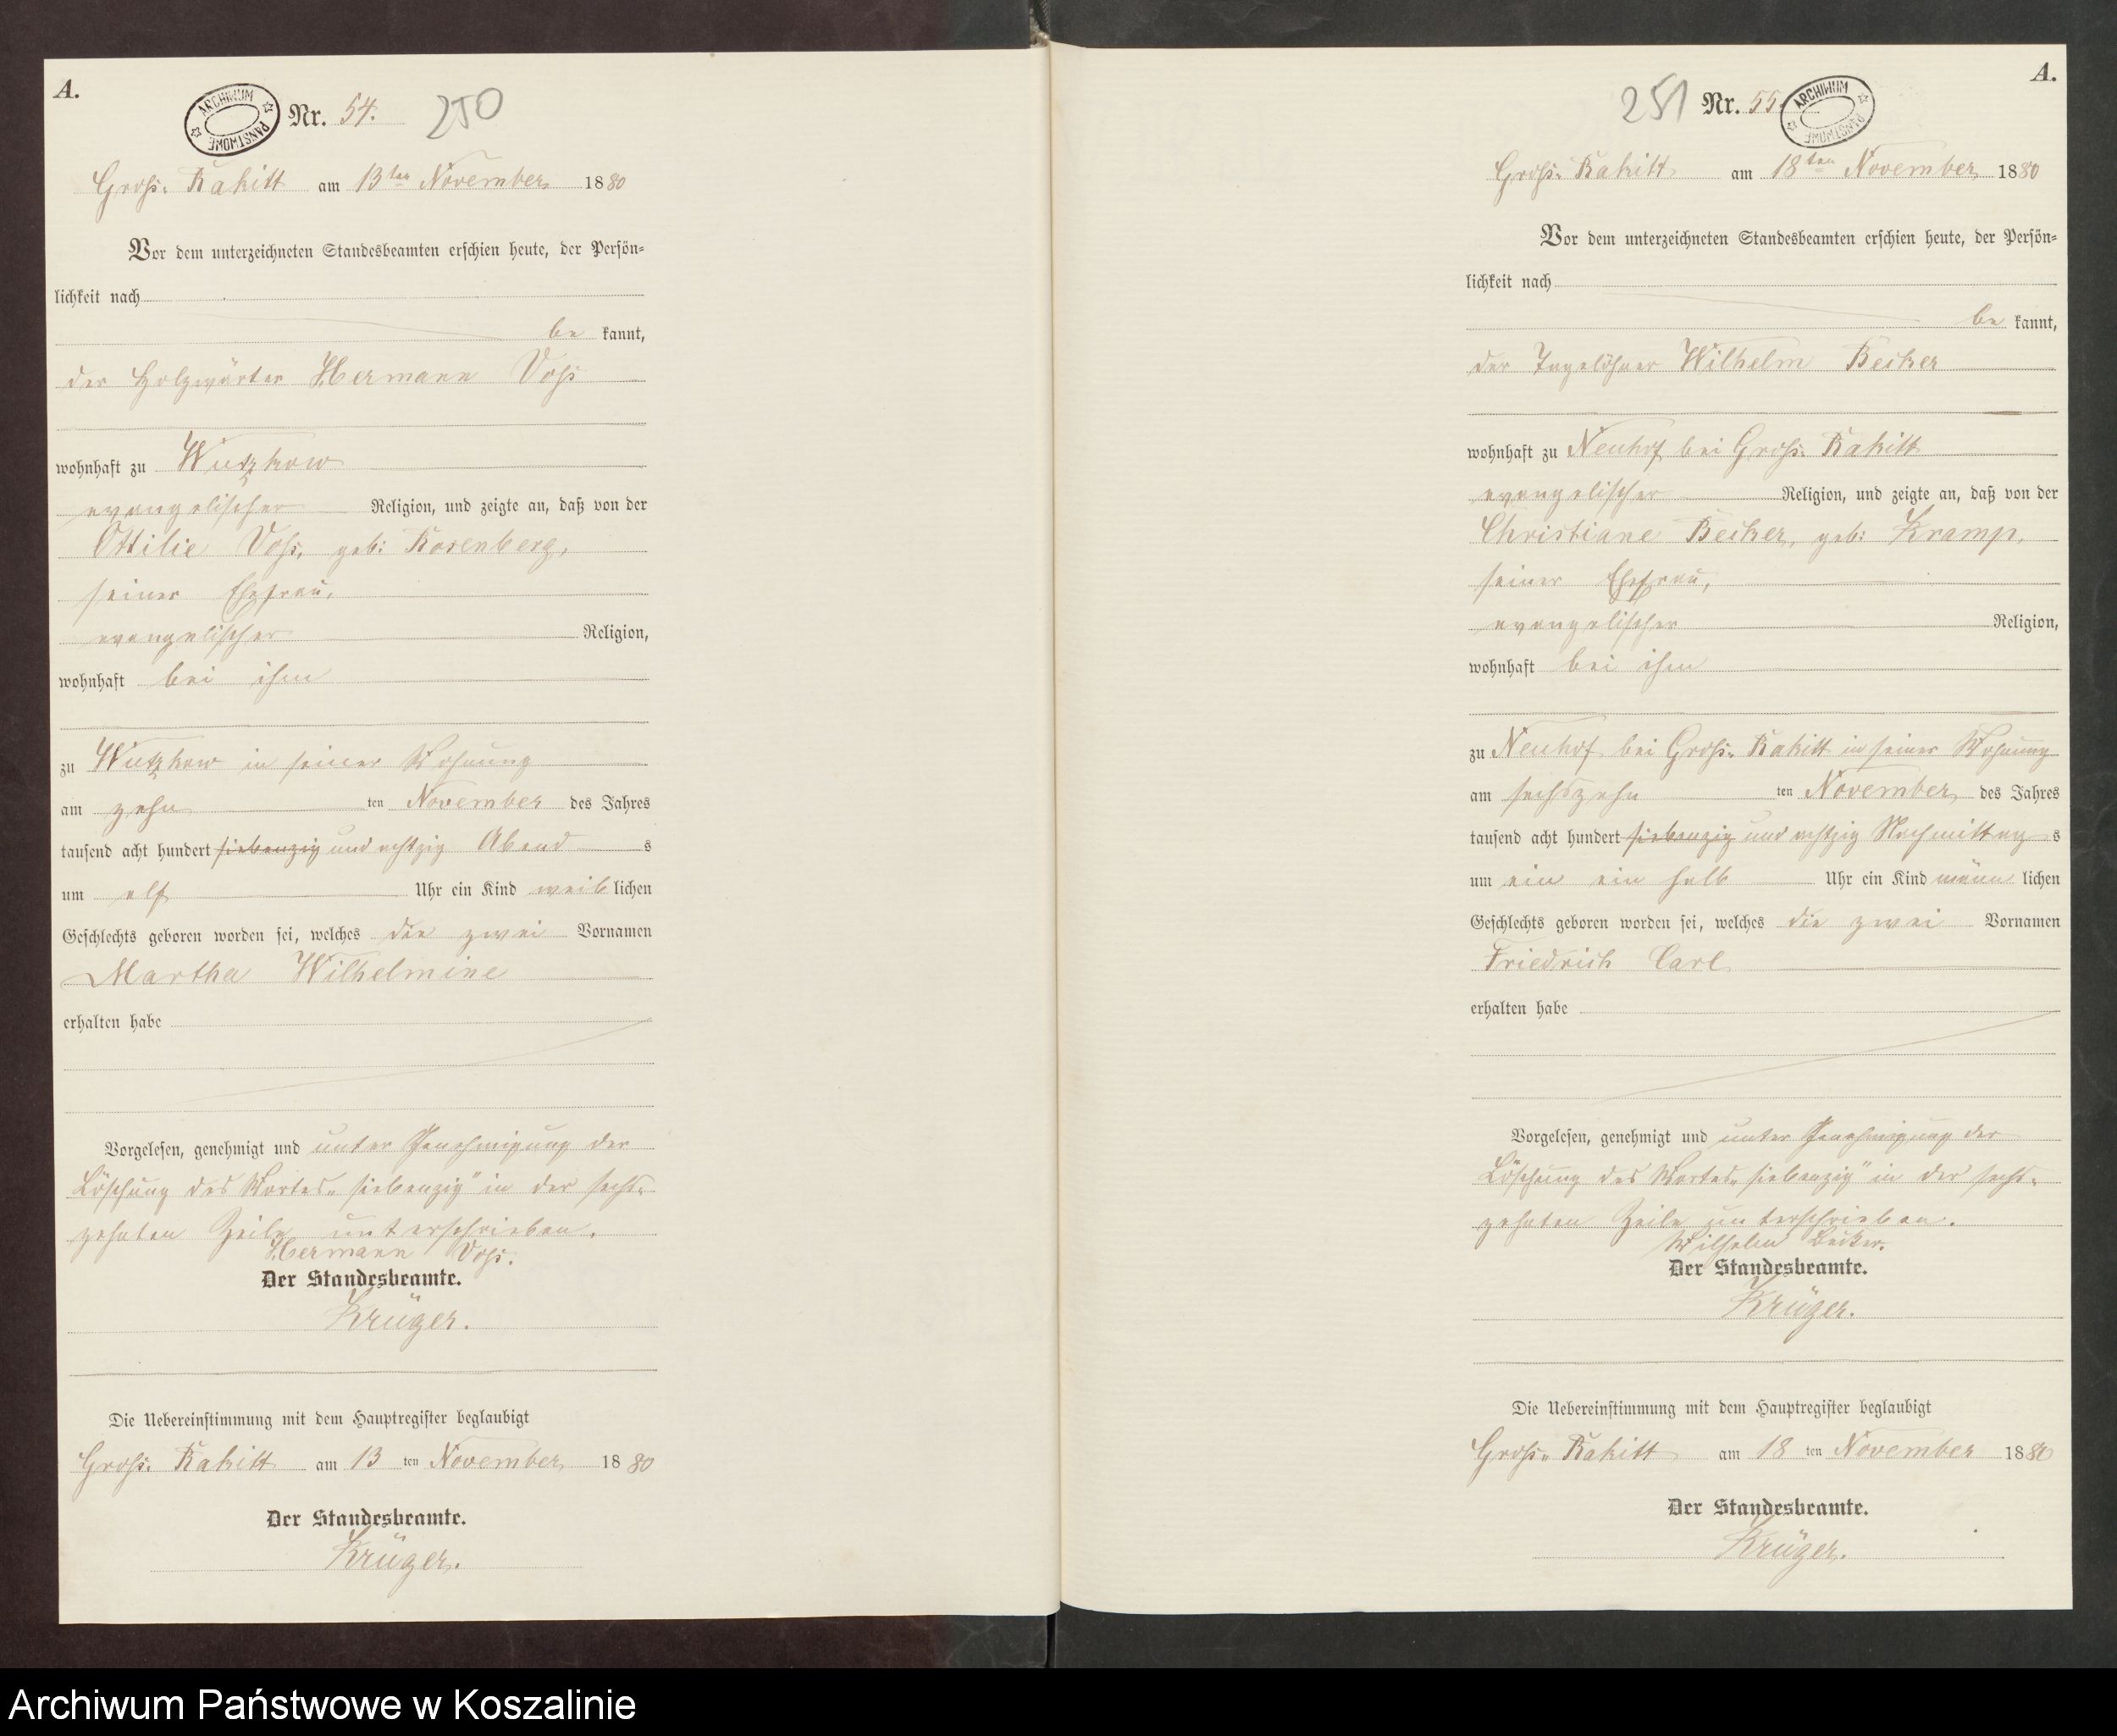 A.
ARCHIWUM PAŃSTWOWE
Nr. 54. 250
Groß-Rakitt am 13ten November 1880
Vor dem unterzeichneten Standesbeamten erschien heute, der Persön-
lichkeit nach
be kannt,
der Holzwärter Hermann Voß
wohnhaft zu Wutzkow
evangelischer Religion, und zeigte an, daß von der
Ottilie Voß, geb: Rosenberg,
seiner Ehefrau,
evangelischer Religion,
wohnhaft bei ihm
zu Wutzkow in seiner Wohnung
am zehn ten November des Jahres
tausend acht hundert siebenzig und achtzig Abend s
um elf Uhr ein Kind weib lichen
Geschlechts geboren worden sei, welches die zwei Vornamen
Martha Wilhelmine
erhalten habe
Vorgelesen, genehmigt und unter Genehmigung der
Löschung des Wortes „siebenzig" in der sechs-
zehnten Zeile unterschrieben.
Hermann Voß.
Der Standesbeamte.
Krüger.
Die Uebereinstimmung mit dem Hauptregister beglaubigt
Groß-Rakitt am 13 ten November 1880
Der Standesbeamte.
Krüger.
A.
251 Nr. 55.
ARCHIWUM PAŃSTWOWE
Groß-Rakitt am 18ten November 1880
Vor dem unterzeichneten Standesbeamten erschien heute, der Persön-
lichkeit nach
be kannt,
der Tagelöhner Wilhelm Becker
wohnhaft zu Neuhof bei Groß-Rakitt
evangelischer Religion, und zeigte an, daß von der
Christiane Becker, geb: Kramp,
seiner Ehefrau,
evangelischer Religion,
wohnhaft bei ihm
zu Neuhof bei Groß-Rakitt in seiner Wohnung
am sechszehn ten November des Jahres
tausend acht hundert siebenzig und achtzig Nachmittag s
um ein ein halb Uhr ein Kind männ lichen
Geschlechts geboren worden sei, welches die zwei Vornamen
Friedrich Carl
erhalten habe
Vorgelesen, genehmigt und unter Genehmigung der
Löschung des Wortes „siebenzig" in der sechs-
zehnten Zeile unterschrieben.
Wilhelm Becker.
Der Standesbeamte.
Krüger.
Die Uebereinstimmung mit dem Hauptregister beglaubigt
Groß-Rakitt am 18 ten November 1880
Der Standesbeamte.
Krüger.
Archiwum Państwowe w Koszalinie